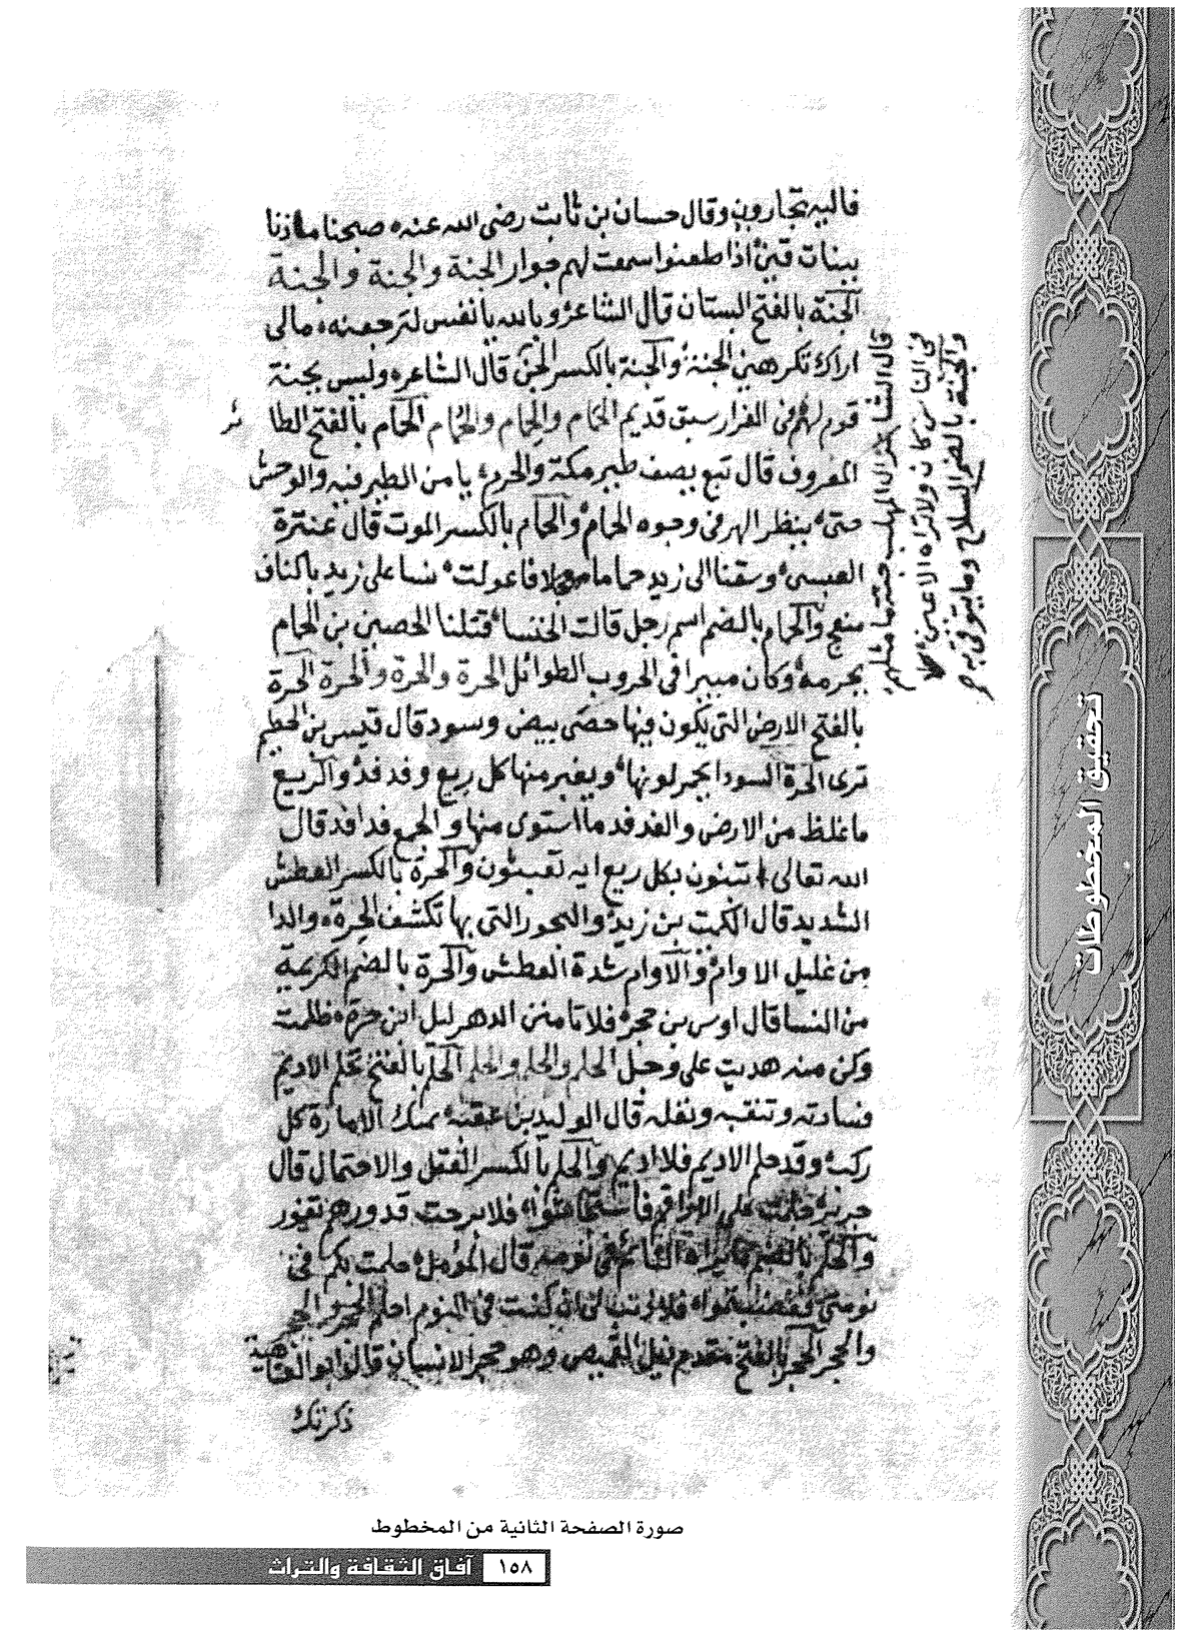 فاليه تجارون وقال حسان بن ثابت رضى الله عنه صبحنا مازنا
ببنات قين اذا طعنوا سمعت لهم جوار الجنة والجنة والجنة
الجنة بالفتح البستان قال الشاعر وبالله يا نفس لترجعنه مالى
اراك تكرهين الجنة والجنة بالكسر الجن قال الشاعر وليس بجنة
قوم لهم فى الفرار سبق قديم الحمام والحمام والحمام الحمام بالفتح الطا
ئر
المعروف قال تبع يصف طير مكة والحرم يا من الطير فيه والوحش
حتى ينظر الهر فى وجوه الحمام والحمام بالكسر الموت قال عنترة
العبسى وسقنا الى زيد حماما فاعولت نسا على زيد باكناف
منعج والحمام بالضم اسم رجل قالت الخنسا قتلنا الحصين بن الحمام
بجرمه وكان مبيرا فى الحروب الطوائل الحرة والحرة والحرة الحرة
بالفتح الارض التى يكون فيها حصى بيض وسود قال قيس بن الخطيم
ترى الحرة السودا يحمر لونها ويغبر منها كل ريع وفدفد والريع
ما غلظ من الارض والفدفد ما استوى منها والجمع فدافد قال
الله تعالى اتبنون بكل ريع ايه تعبثون والحرة بالكسر العطش
الشديد قال الكميت بن زيد والبحور التى بها تكشف الحرة والدا
من غليل الاوام والاوام شدة العطش والحرة بالضم الكريمة
من النسا قال اوس بن حجر فلا تامنن الدهر ليل ابن حرة ظلمت
وكن منه هديت على وجل الحلم والحلم والحلم الحلم بالفتح تحلم الاديم
فسادته وتنقبه ونغله قال الوليد بن عقبة يمنك الامارة كل
ركب وقد حلم الاديم فلا اديم والحلم بالكسر العقل والاحتمال قال
جرير على فلا برحت قدورهم تفور
والحلم بالضم ما يراه النائم فى نومه قال المؤمل حلمت بكم فى
نومتى فغضبتموا فلا ذنب لى ان كنت فى النوم احلم الحجر والحجر
والحجر الحجر بالفتح مقدم ذيل القميص وهو حجر الانسان قال ابو العتاهية
ذكرتك
والجنة بالضم السلاح وما يتوقى به
قال الشاعر ال المهلب جنتها مثلهم
فى الناس كان ولا تراه الاعين
تحقيق المخطوطات
صورة الصفحة الثانية من المخطوط
١٥٨ آفاق الثقافة والتراث